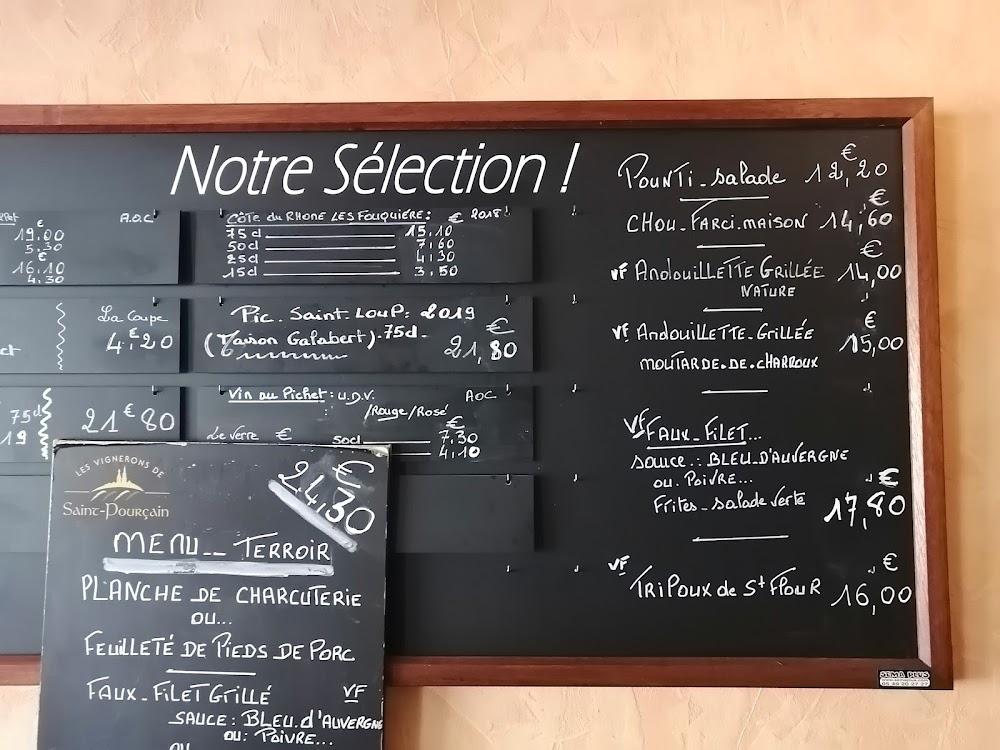 Notre Sélection !
A.O.C
€
19,00
5,30
€
16,10
4,30
La Coupe
€
4,20
75d
19
21€80
CÔTE du RHONE LES FOUQUIÈRE: € 2018
75 cl 15,10
50cl 7,60
25cl 4,30
15cl 3,50
Pic Saint Loup: 2019
(Maison Gafabert) - 75d - €
21,80
Vin au Pichet: U.D.V. AOC
/Rouge/Rosé
€
Le Verre € 50cl 7,30
4,10
€
Pounti - salade 12,20
€
CHOU - FARCI. MAISON 14,60
€
VF ANDOUILLETTE GRILLÉE 14,00
NATURE
€
VF ANDOUILLETTE - GRILLÉE 15,00
MOUTARDE. DE. CHARROUX
VF FAUX - FILET...
SAUCE.: BLEU. D'AUVERGNE
OU. POIVRE...
€
Frites - salade verte 17,80
VF €
TRIPOUX de St FLOUR 16,00
LES VIGNERONS DE
SAINT-POURÇAIN
€
24,30
MENU -- TERROIR
PLANCHE DE CHARCUTERIE
OU...
FEUILLETÉ DE PIEDS DE PORC
FAUX - FILET GRILLÉ VF
SAUCE: BLEU. d'AUVERGNE
OU: POIVRE...
OU
SEMA PLUS